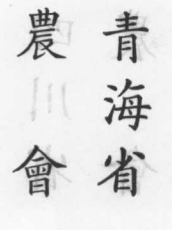 青海省
農會